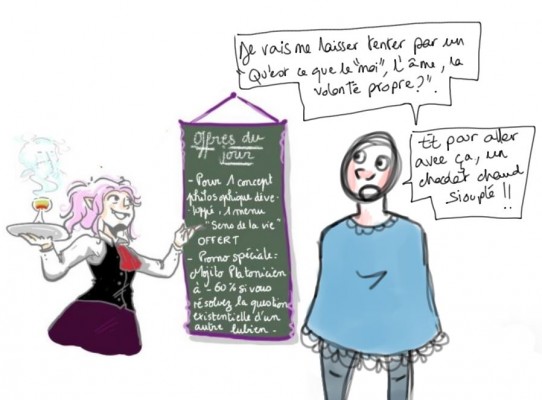 Je vais me laisser tenter par un
"Qu'est ce que le "moi", l'âme, la
volonté propre?".
Et pour aller
avec ça, un
chocolat chaud
siouplé !!
Offres du
jour
- Pour 1 concept
philosophique déve-
loppé, 1 menu
"Sens de la vie"
OFFERT
- Promo spéciale:
Mojito Platonicien
à -60% si vous
résolvez la question
existentielle d'un
autre lubien.